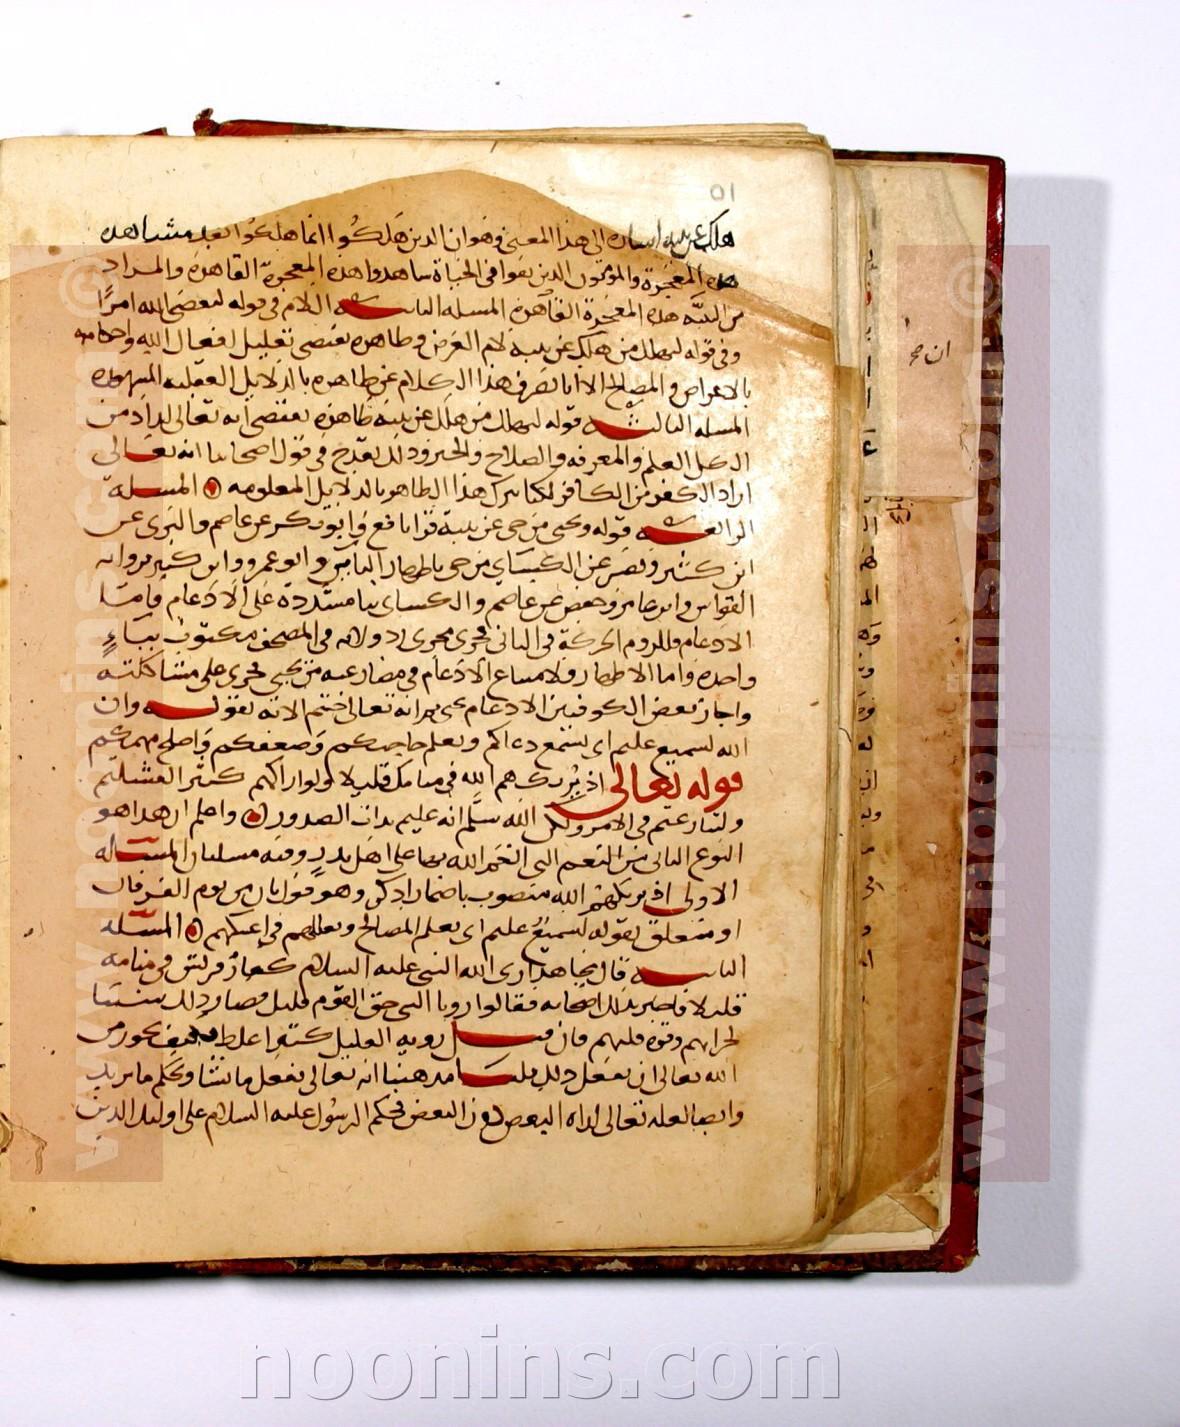 ٥١
هلك عن بينة اشارة الى هذا المعنى وهو ان الذين هلكوا انما هلكوا بعد مشاهدة
هذه المعجزة والمؤمنون الذين بقوا فى الحياة شاهدوا هذه المعجزة القاهرة والمراد
من البينة هذه المعجزة القاهرة المسله الثانية اللام فى قوله ليقضى الله امرا
وفى قوله ليهلك من هلك عن بينة لام الغرض وظاهره يقتضى تعليل افعال الله واحكامه
بالاغراض والمصالح الا انا نصرف هذا الكلام عن ظاهره بالدلايل العقليه المشهورة
المسله الثالثة قوله ليهلك من هلك عن بينة ظاهره يقتضى انه تعالى اراد من
الكل العلم والمعرفه والصلاح والخير وذلك يقدح فى قول اصحابنا انه تعالى
اراد الكفر من الكافر لكنا نترك هذا الظاهر بالدلايل المعلومه المسلة
الرابعة قوله ويحيى من حى عن بينة قرا نافع وابو بكر عن عاصم والبزى عن
ابن كثير ونصير عن الكسائ من حى باظهار اليأين وابو عمرو وابن كثير برواية
القواس وابن عامر وحفص عن عاصم والكسائ بيا مشددة على الادغام فامّا
الادغام فللزوم الحركة فى الثانى فجرى مجرى رد ولانه فى المصحف مكتوب بياءٍ
واحدة واما الاظهار فلامتناع الادغام فى مضارعه من يحيى فجرى على مشاكلته
واجاز بعض الكوفيين الادغام فى يحيى ثم انه تعالى ختم الاية بقوله وان
الله لسميع عليم اى يسمع دعاكم ويعلم حاجتكم وضعفكم فاصلح مهمكم
قوله تعالى اذ يُريكهم الله فى منامك قليلا ولو اراكهم كثيرا لفشلتم
ولتنازعتم فى الامر ولكن الله سلّم انه عليم بذات الصدور واعلم ان هذا هو
النوع الثانى من النعم التى انعم الله بها على اهل بدر وفيه مسلتان المسله
الاولى اذ يريكهم الله منصوب باضمار اذكر وهو قول ثان من يوم الفرقان
او متعلق بقوله لسميع عليم اى يعلم المصالح ويقللهم فى اعينكم المسله
الثانية قال مجاهد ارى الله النبى عليه السلام كفار قريش فى منامه
قليلا فاخبر بذلك اصحابه فقالوا رويا النبى حق القوم قليل فصار ذلك سببا
لجراتهم وقوة قلبهم فان قيل روية الكثير القليل غلط فكيف يجوز من
الله تعالى ان يفعل ذلك قلنا مذهبنا انه تعالى يفعل ما يشا ويحكم ما يريد
وايضا لعله تعالى اراه البعض دون البعض فحكم الرسول عليه السلام على اوليك الذين
ان صح
noonins.com
www.noonins.com ©
www.noonins.com ©